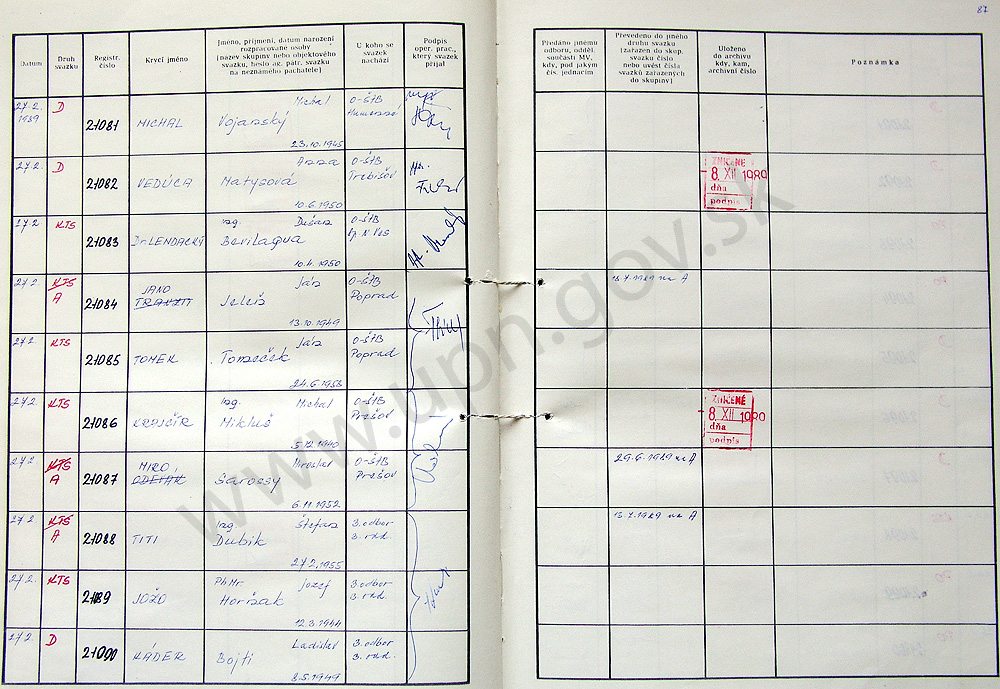 87
Datum
Druh
svazku
Registr.
číslo
Krycí jméno
Jméno, příjmení, datum narození
rozpracované osoby
[název skupiny nebo objektového
svazku, heslo ag. pátr. svazku
na neznámého pachatele]
U koho se
svazek
nachází
Podpis
oper. prac.,
který svazek
přijal
Předáno jinému
odboru, odděl.
součásti MV,
kdy, pod jakým
čís. jednacím
Převedeno do jiného
druhu svazku
[zařazen do skup.
svazku číslo
nebo uvést čísla
svazků zařazených
do skupiny]
Uloženo
do archivu
kdy, kam,
archivní číslo
Poznámka
27.2.
1989
D
21081
MICHAL
Michal
Vojanský
23.10.1945
O-ŠtB
Humenné
27.2.
D
21082
VEDÚCA
Anna
Matysová
10.6.1950
O-ŠtB
Trebišov
ZNIČENÉ
8. XII 1989
dňa
podpis
27.2.
KTS
21083
Dr. LENDACKÝ
Ing. Dušan
Berilagua
10.4.1950
O-ŠtB
Sp. N. Ves
27.2.
KTS
A
21084
JANO
TRANZIT
Ján
Jeleň
13.10.1949
O-ŠtB
Poprad
13.7.1989 na A
27.2.
KTS
21085
TOMEK
Ján
Tomeček
24.6.1953
O-ŠtB
Poprad
27.2.
KTS
21086
KRAJČÍR
Ing. Michal
Mikluš
5.12.1940
O-ŠtB
Prešov
ZNIČENÉ
8. XII 1989
dňa
podpis
27.2.
KTS
A
21087
MIRO,
Miroslav
Sarossy
6.11.1952
O-ŠtB
Prešov
29.6.1989 na A
27.2.
KTS
A
21088
TITI
Ing. Štefan
Dubik
27.2.1955
3. odbor
3. rad.
13.7.1989 na A
27.2.
KTS
21089
JOŽO
PhMr. Jozef
Horňak
12.3.1944
3. odbor
3. rad.
27.2.
D
21090
KÁDER
Ladislav
Bojti
8.5.1949
3. odbor
3. rad.
www.upn.gov.sk